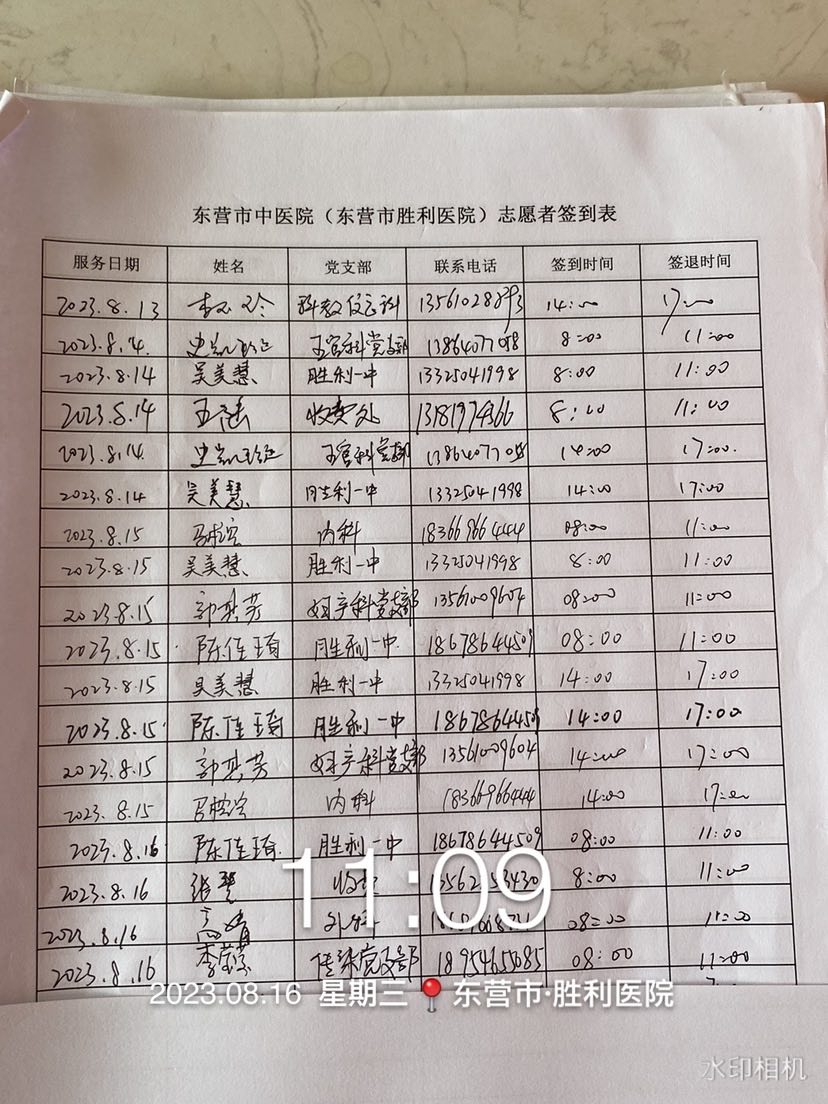 东营市中医院（东营市胜利医院）志愿者签到表
服务日期 姓名 党支部 联系电话 签到时间 签退时间
2023.8.13 13561028893 14:00 17:00
2023.8.14. 党支部 8:00 11:00
2023.8.14 吴美慧 胜利一中 13325041998 8:00 11:00
2023.8.14 王涵 收费处 13181974366 8:00 11:00
2023.8.14. 党支部 14:00 17:00.
2023.8.14 吴美慧 胜利一中 13325041998 14:00 17:00
2023.8.15 内科 18366966444 08:00 11:00
2023.8.15 吴美慧 胜利一中 13325041998 8:00 11:00
2023.8.15 郭其芳 妇产科党支部 13561009604 08:00 11:00
2023.8.15 陈佳琦 胜利一中 18678644509 08:00 11:00
2023.8.15 吴美慧 胜利一中 13325041998 14:00 17:00
2023.8.15 陈佳琦 胜利一中 18678644509 14:00 17:00
2023.8.15 郭其芳 妇产科党支部 13561009604 14:00 17:00
2023.8.15 内科 18366966444 14:00 17:00
2023.8.16 陈佳琦 胜利一中 18678644509 08:00 11:00
2023.8.16 张慧 8:00 11:00
2023.8.16 高婧 08:00 11:00
2023.8.16 党支部 08:00 11:00
11:09
2023.08.16 星期三 东营市·胜利医院
水印相机